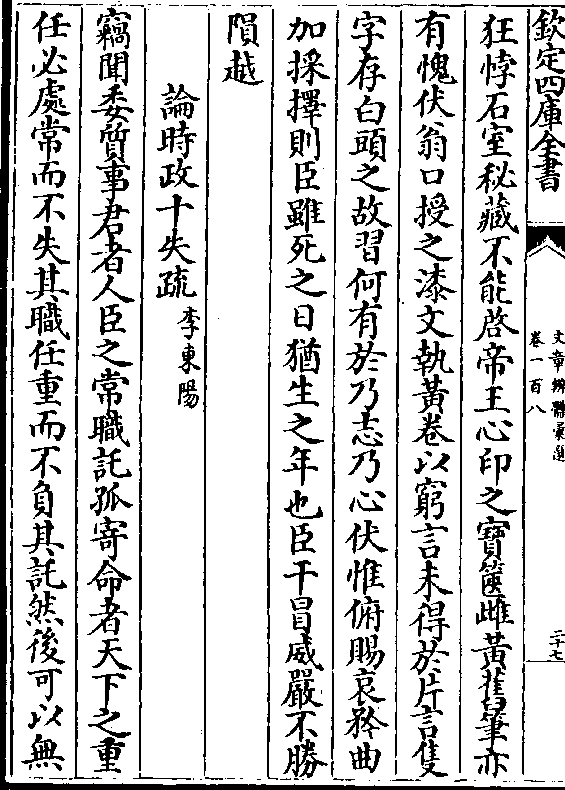 欽定四庫全書
文章辨體彙選
卷一百八
二十七
狂悖石室秘藏不能啓帝王心印之寶篋雌黄舊筆亦
有愧伏翁口授之漆文執黄卷以窮言未得於片言隻
字存白頭之故習何有於乃志乃心伏惟俯賜哀矜曲
加採擇則臣雖死之日猶生之年也臣干冒威嚴不勝
隕越
論時政十失疏 李東陽
竊聞委質事君者人臣之常職託孤寄命者天下之重
任必處常而不失其職任重而不負其託然後可以無